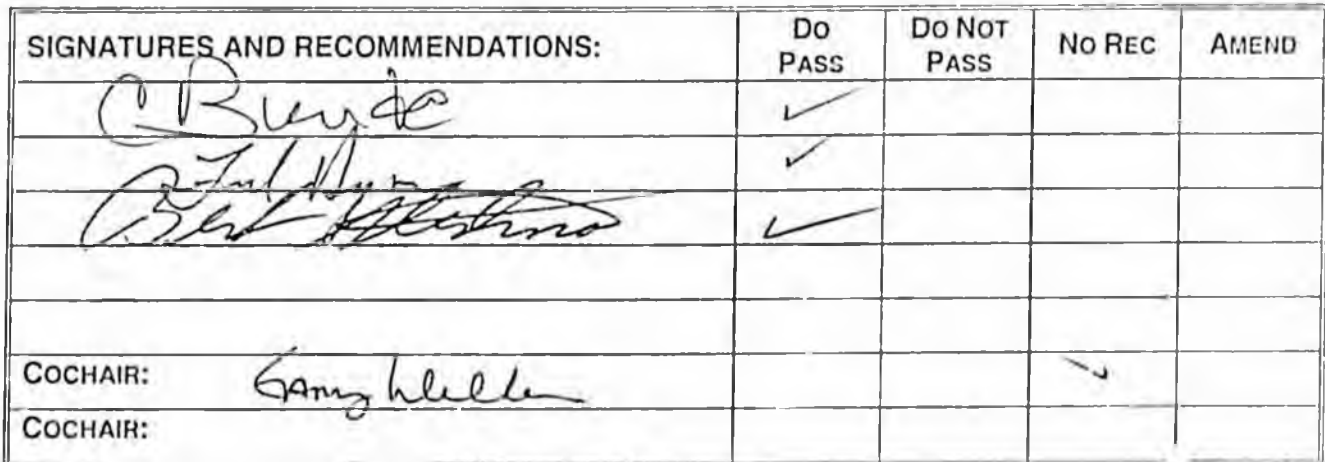 SIGNATURES AND RECOMMENDATIONS: DO PASS DO NOT PASS NO REC AMEND
C Bunde ✓
✓
Bert ✓
COCHAIR: Gary Wilken ✓
COCHAIR: